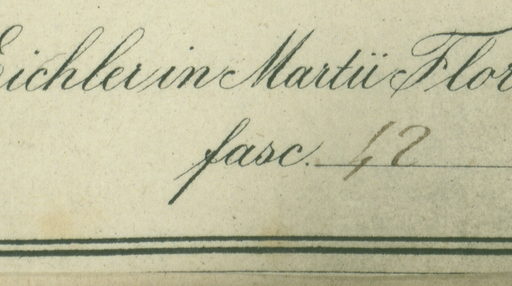 Eichler in Martii Flor
fasc. 42